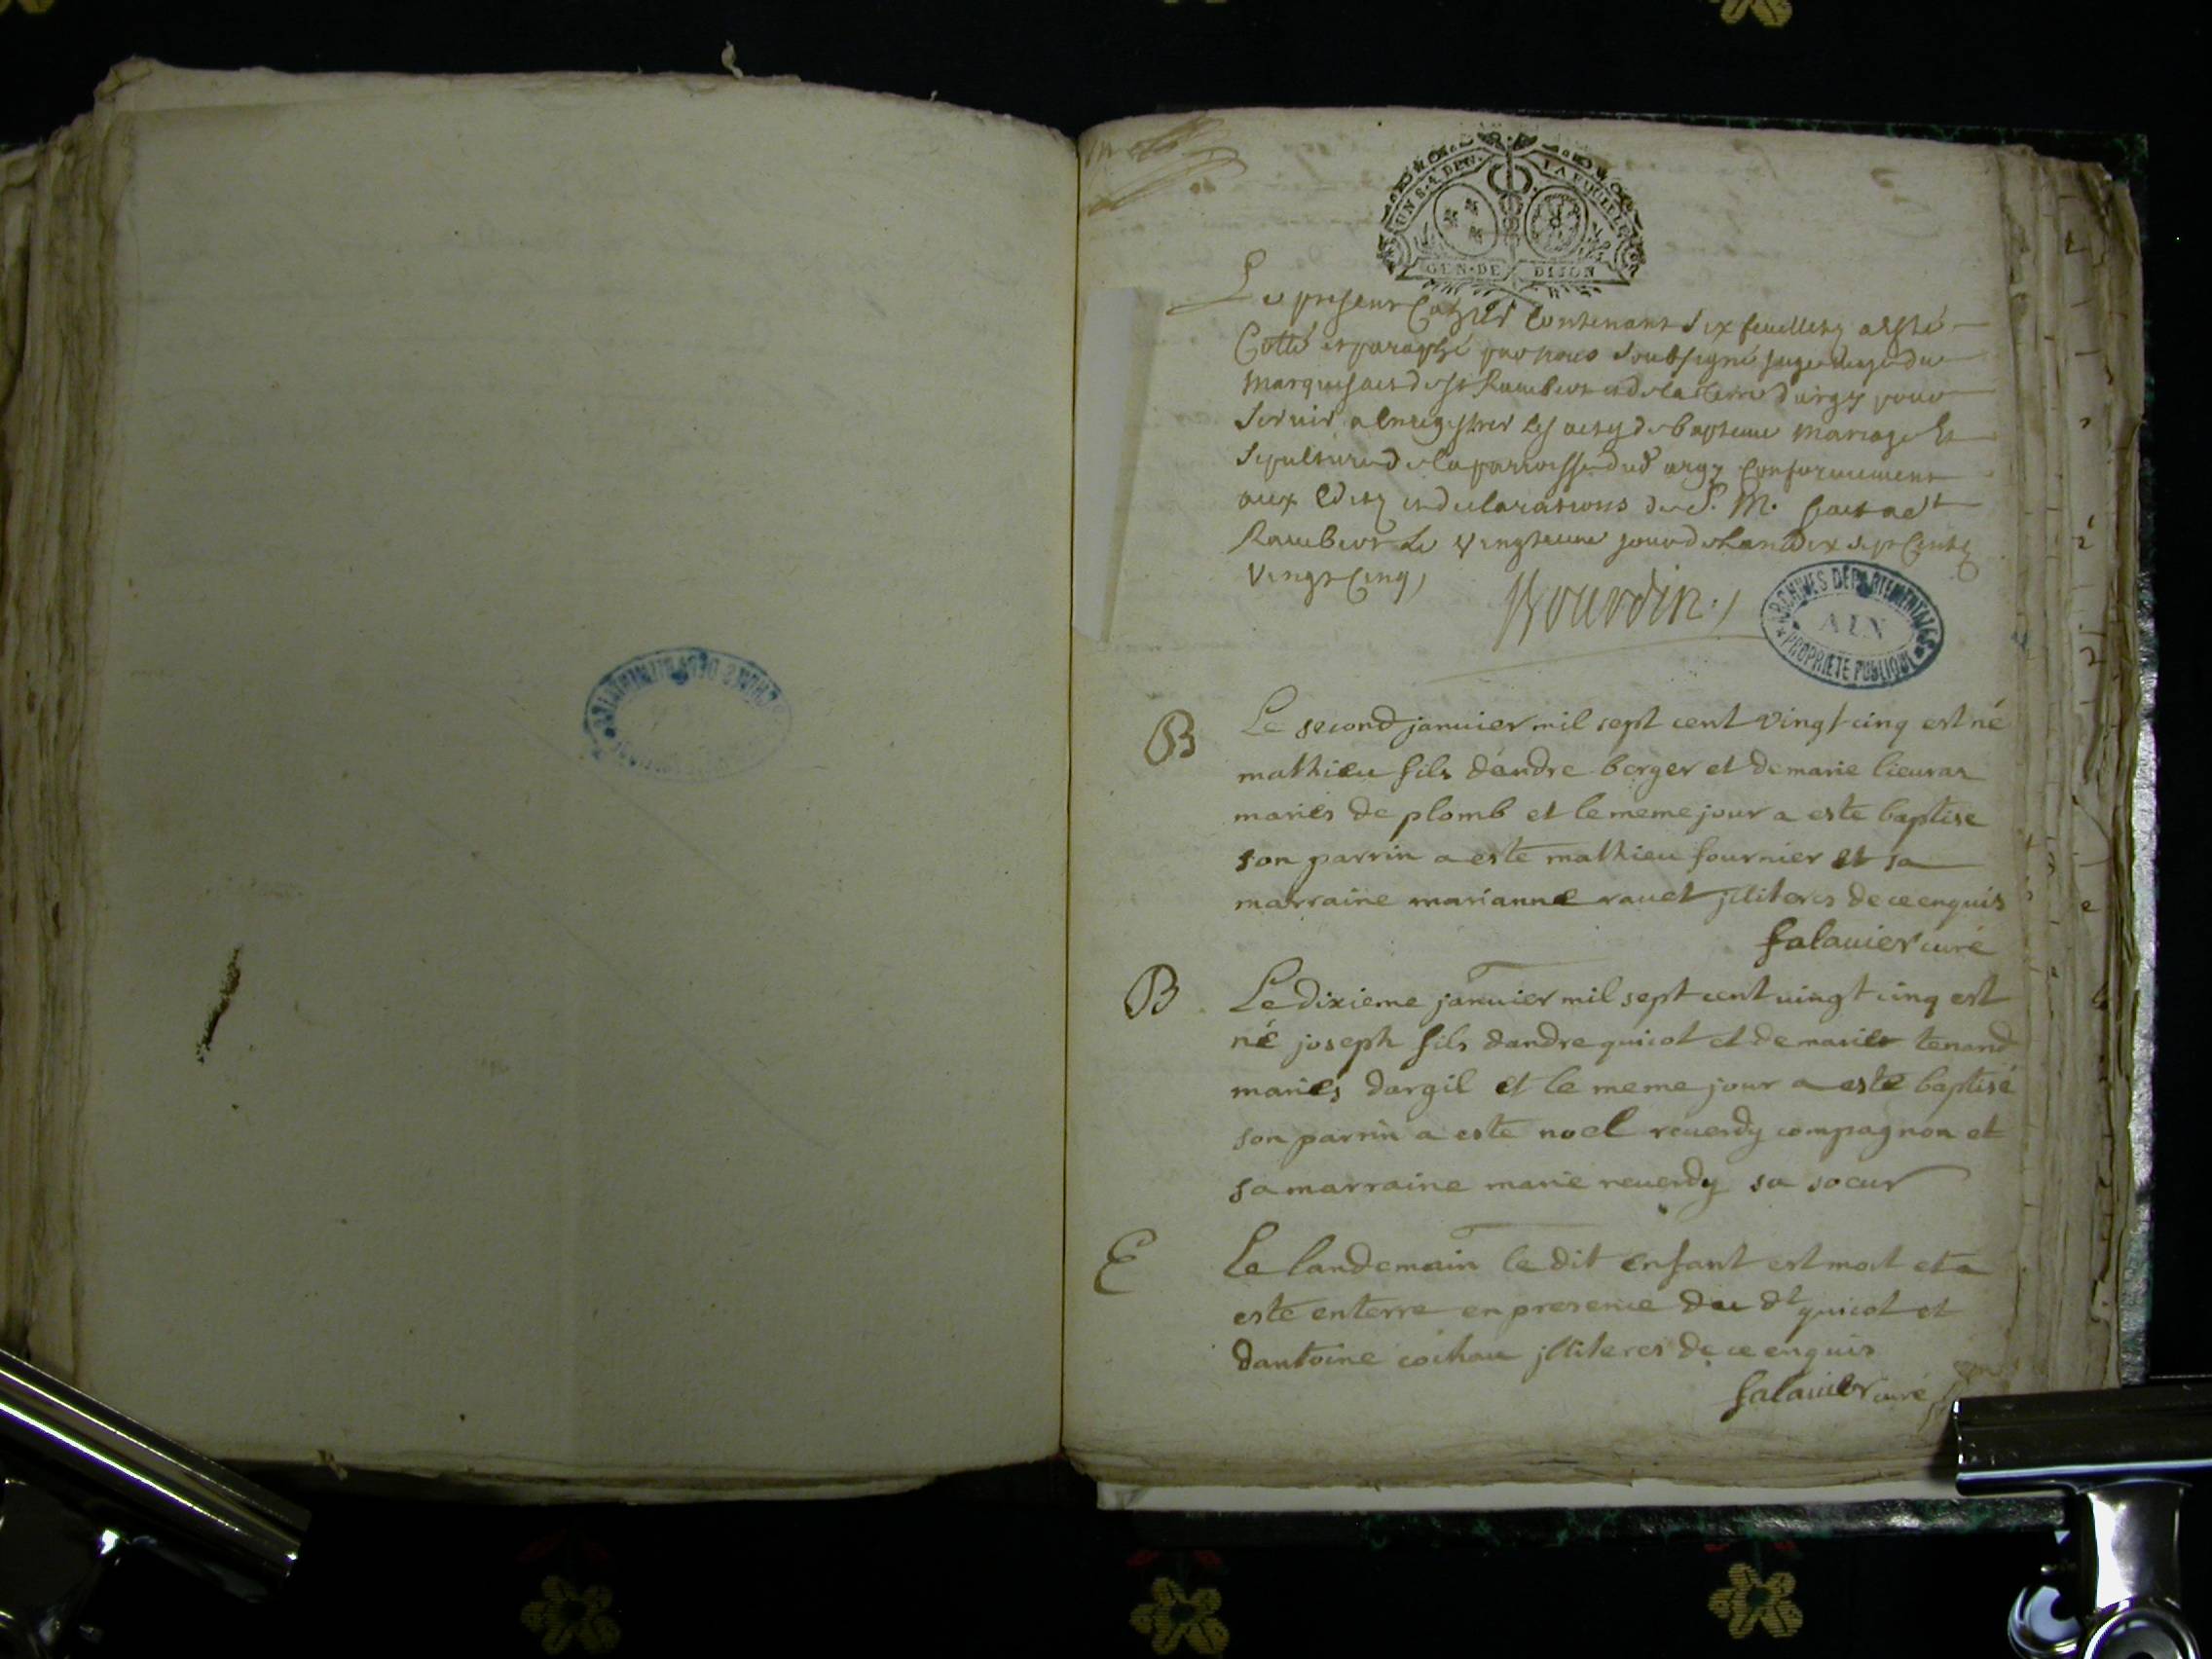 UN S. 4. DEN. LA FEUILLE
GEN. DE DIJON
Le present Cahier Contenant six feuillets a esté
Cotté et paraphé par nous soubsigné juge mage du
Marquisat de st Rambert et de la terre d'argis pour
servir a Enregistrer les actes de bapteme mariage Et
sepulture de la parroisse dud argis Conformement
aux Edits et declarations de S. M. fait a st
Rambert le vingtieme jour de l'an dix sept Cents
vingt Cinq
Bourdin
ARCHIVES DÉPARTEMENTALES
AIN
PROPRIÉTÉ PUBLIQUE
B Le second januier mil sept cent vingt cinq est né
mathieu fils d'andre berger et de marie lieuras
mariés de plomb et le meme jour a este baptise
son parrin a este mathieu fournier et sa
marraine marianne rauet jlliteres de ce enquis
falauier curé
B Le dixieme januier mil sept cent uingt cinq est
né joseph fils dandre quicot et de marie tenand
mariés dargil et le meme jour a este baptisé
son parrin a este noel reuerdy compagnon et
sa marraine marie reuerdy sa soeur
E Le landemain le dit enfant est mort et a
este enterre en presence du dt quicot et
dantoine cochau jlliteres de ce enquis
falauier curé